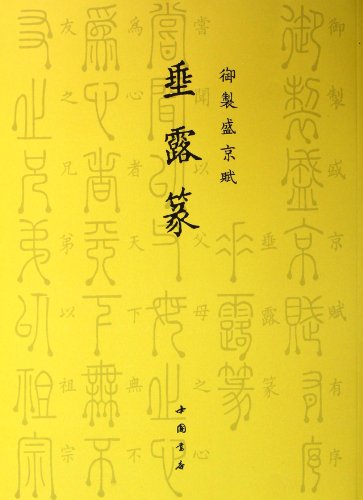 御製盛京賦
垂露篆
中國書店
御製盛京賦有序
垂露篆
嘗聞以父母之心
為心者天下無不
友之兄弟以祖宗